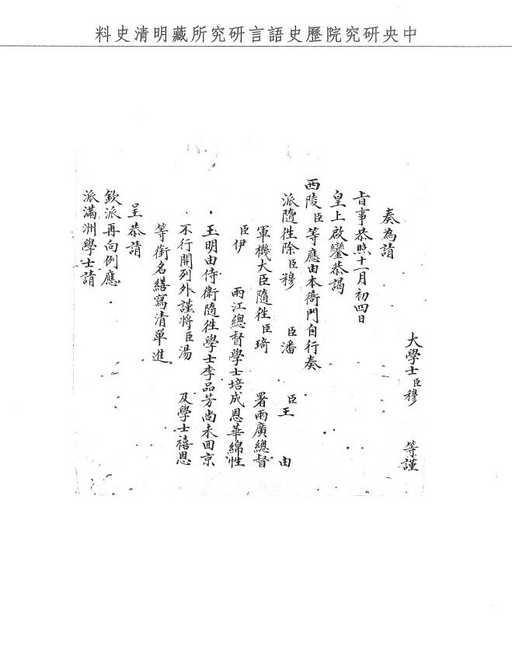 中央研究院歷史語言研究所藏明清史料
大學士臣穆 等謹
奏為請
旨事恭照十一月初四日
皇上啟鑾恭謁
西陵臣等應由本衙門自行奏
派隨往除臣穆 臣潘 臣王 由
軍機大臣隨往臣琦 署兩廣總督
臣伊 兩江總督學士培成恩華綿性
玉明由侍衛隨往學士李品芳尚未回京
不行開列外謹將臣湯 及學士禧恩
等銜名繕寫清單進
呈恭請
欽派再向例應
派滿洲學士請